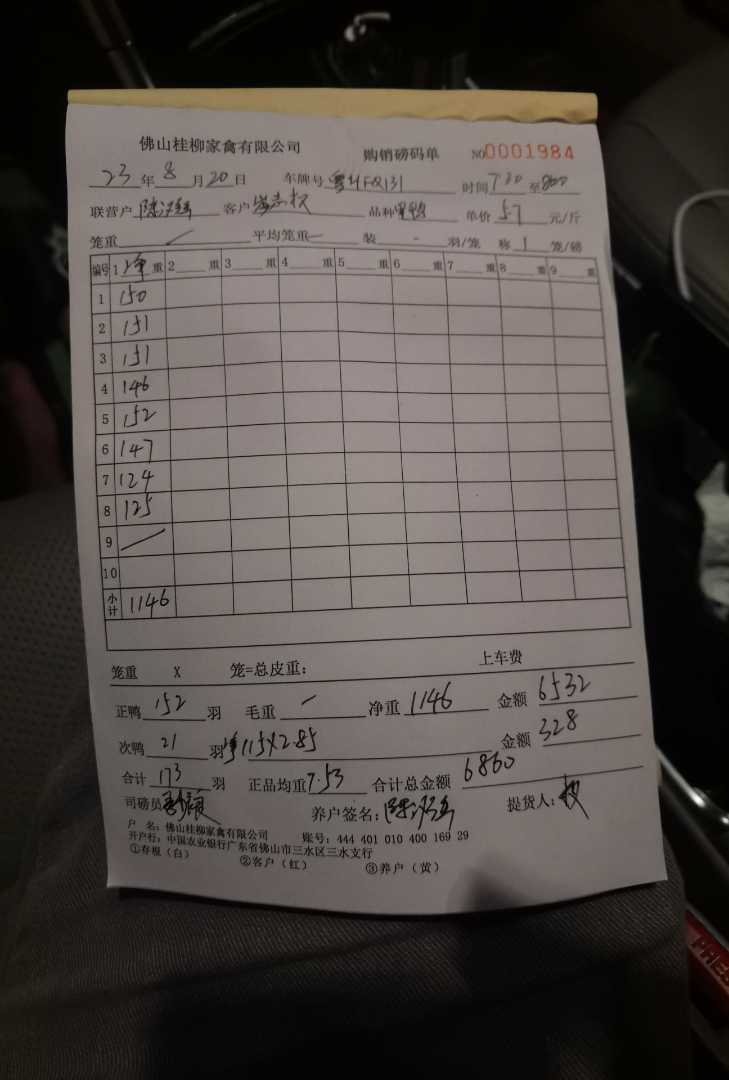 佛山桂柳家禽有限公司 购销磅码单 NO0001984
23年8月20日 车牌号 粤HFQ131 时间730至800
联营户 客户 品种 单价5.7元/斤
笼重 / 平均笼重 — 装 - 羽/笼 称1笼/磅
编号 1净重 2 重 3 重 4 重 5 重 6 重 7 重 8 重 9 重
1 150
2 151
3 151
4 146
5 152
6 147
7 124
8 125
9 /
10
小计 1146
笼重 X 笼=总皮重: 上车费
正鸭152羽 毛重 — 净重1146 金额6532
次鸭21羽 净115X2.85 金额328
合计173羽 正品均重7.53 合计总金额6860
司磅员 养户签名: 提货人:
户 名: 佛山桂柳家禽有限公司 账号: 444 401 010 400 169 29
开户行: 中国农业银行广东省佛山市三水区三水支行
①存根(白) ②客户(红) ③养户(黄)